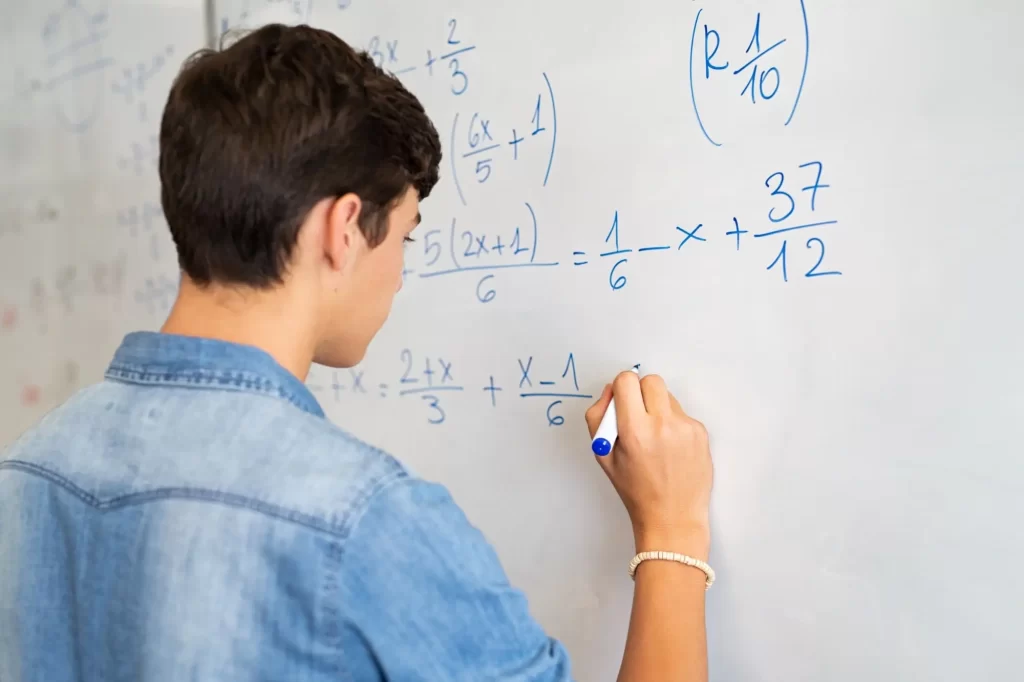 3x + 2/3
(R 1/10)
(6x/5 + 1)
5(2x+1)/6 = 1/6 - x + 37/12
+ x = 2+x/3 + x-1/6